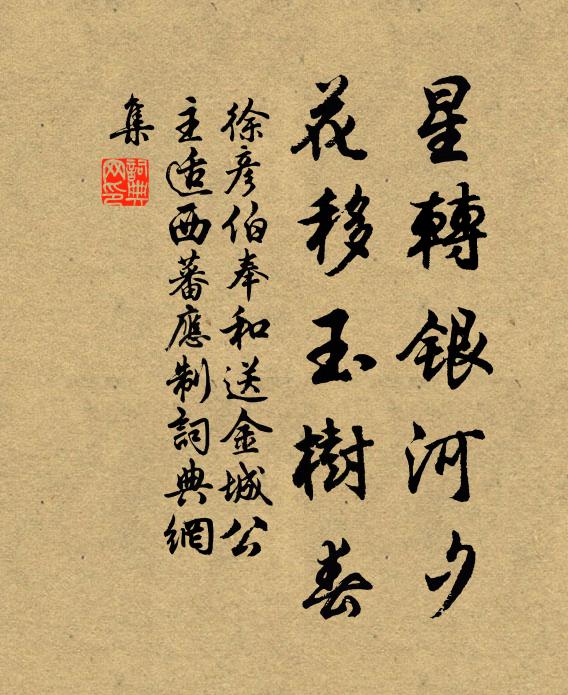 星轉銀河夕
花移玉樹春
徐彥伯奉和送金城公
主适西蕃應制詞典網
集
詞典
网印